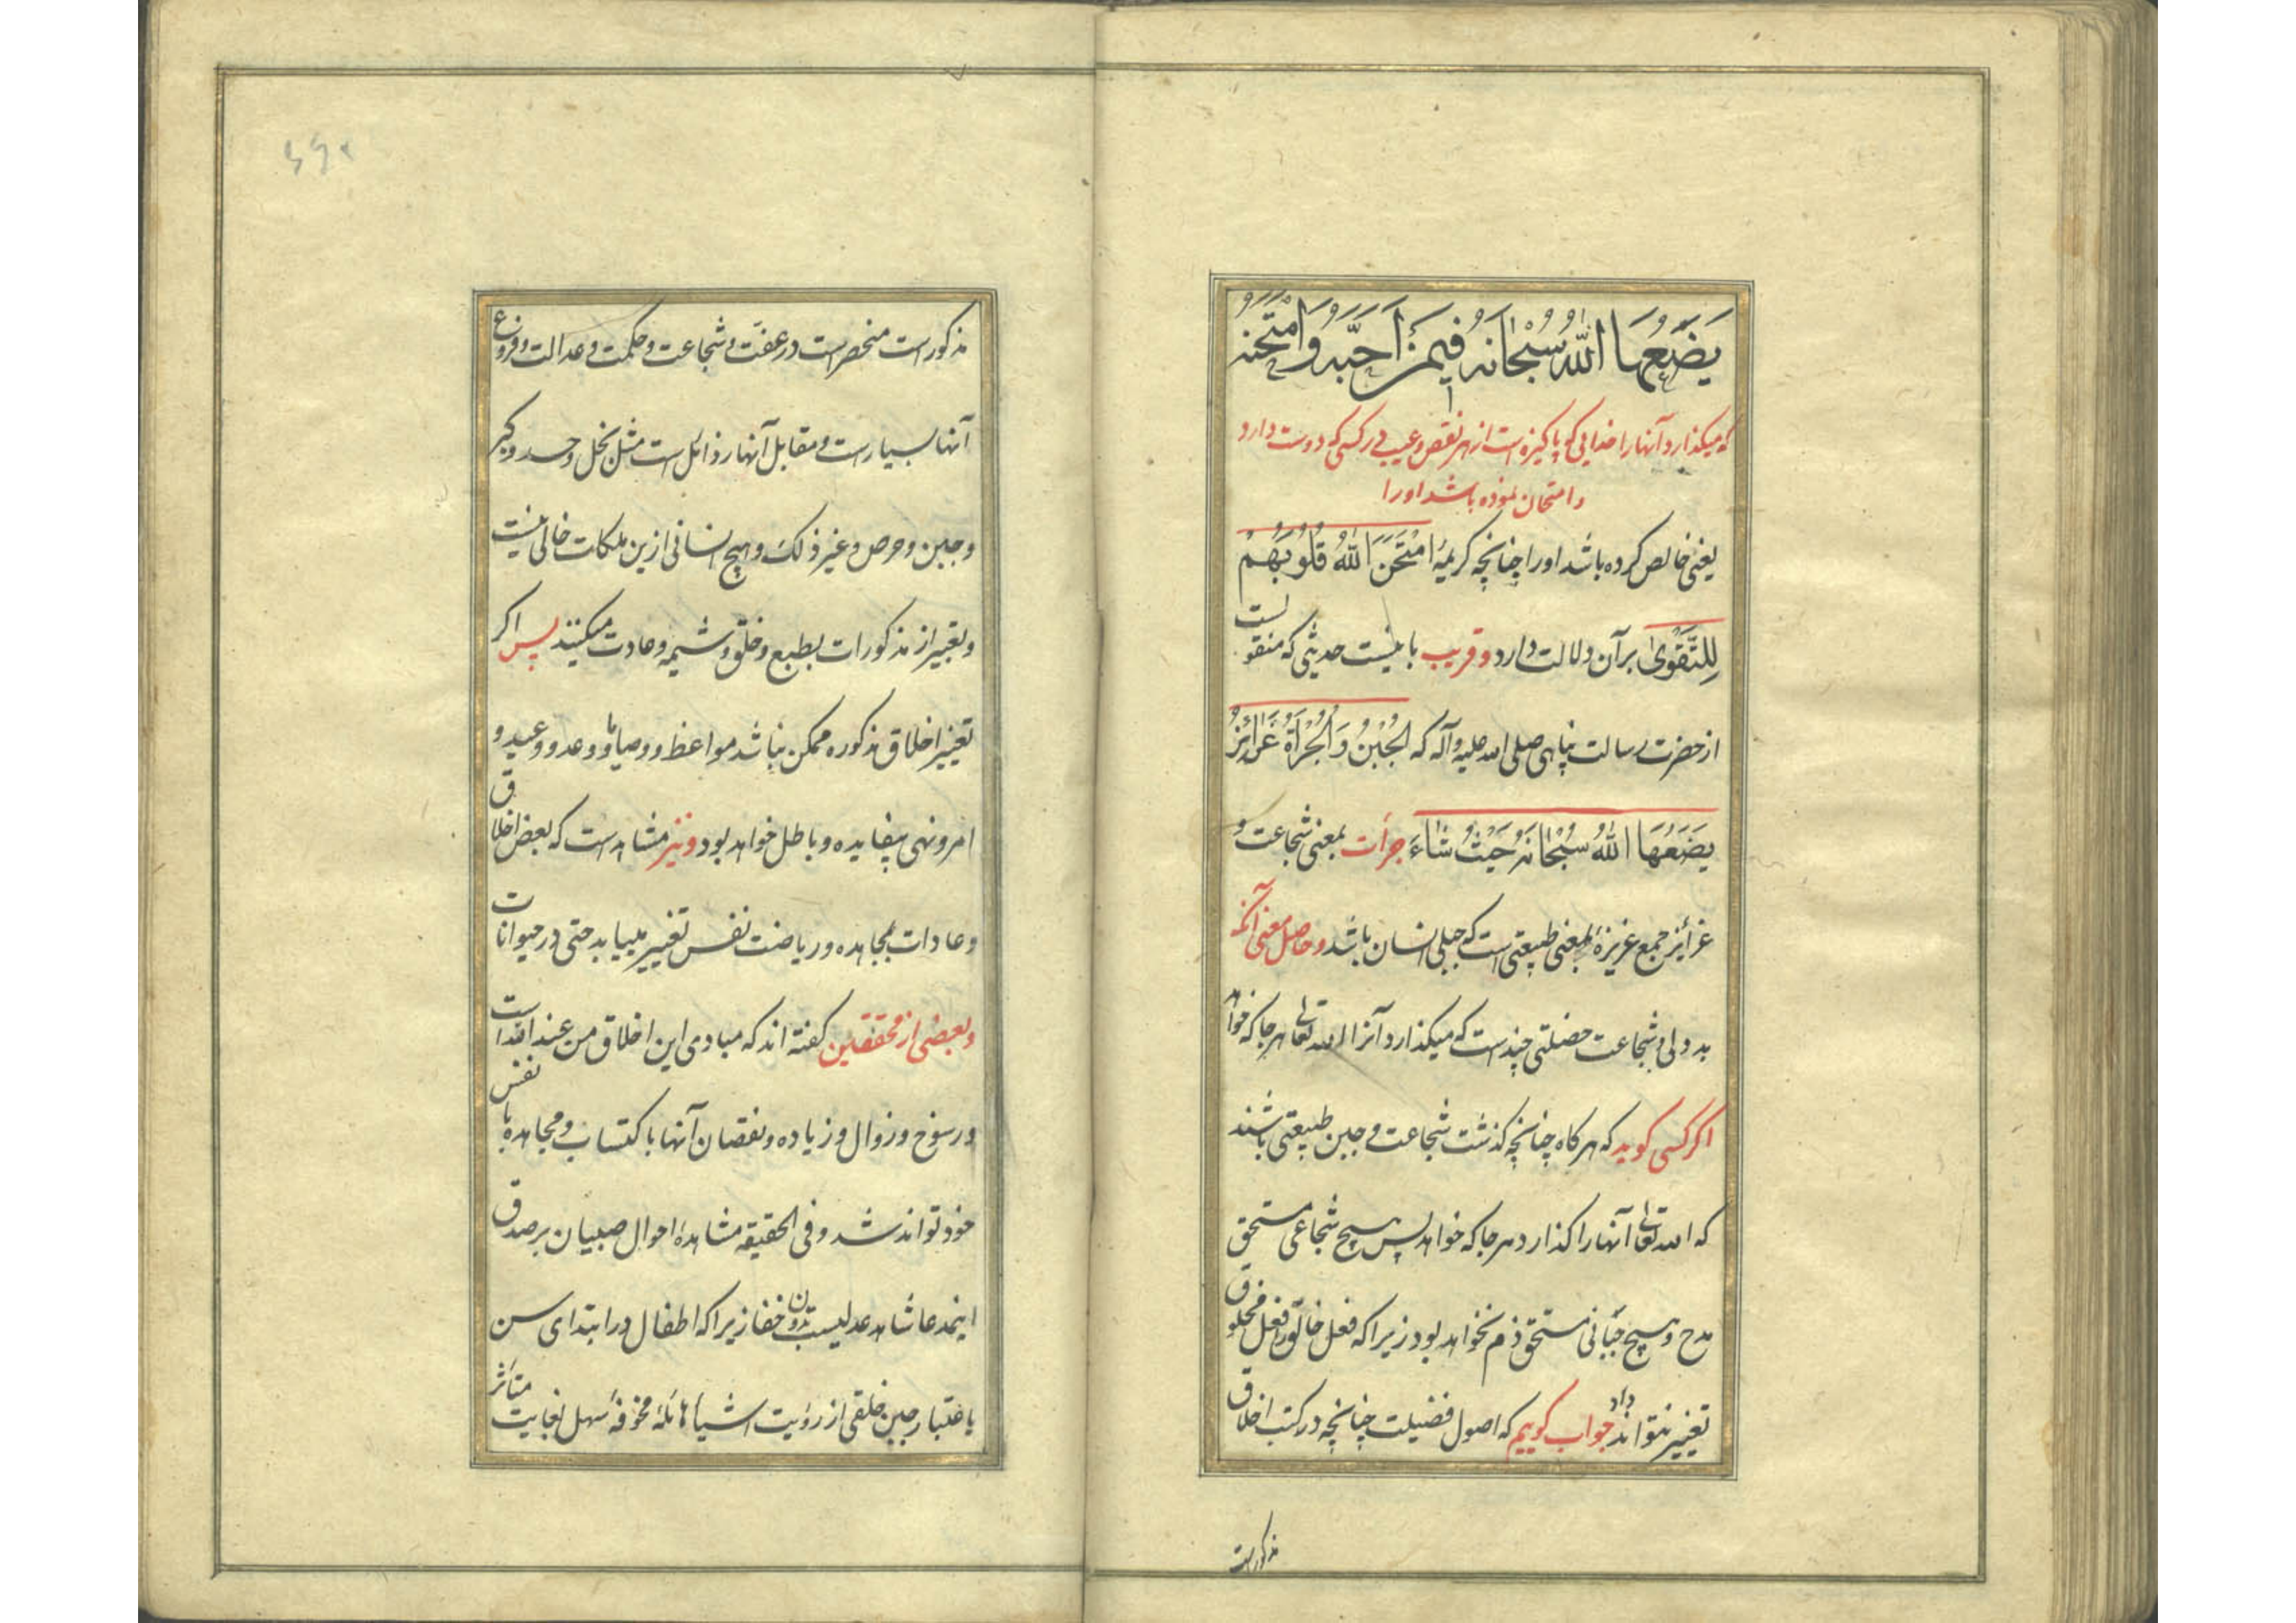 يَضَعُهَا اللّٰهُ سُبْحَانَهُ فِيمَنْ اَحَبَّهُ وَامْتَحَنَهُ
که میکذارد آنها را خدایی که پاکیزه است از هر نقص و عیب در کسی که دوست دارد
و امتحان نموده باشد او را
یعنی خالص کرده باشد او را چنانچه کریمهٔ اِمْتَحَنَ اللّٰهُ قُلُوبَهُمْ
لِلتَّقْوٰی بر آن دلالت دارد و قریب باینست حدیثی که منقولست
از حضرت رسالت پناهی صلی الله علیه و آله که الْجُبْنُ وَ الْجُرْأَةُ غَرَائِزُ
يَضَعُهَا اللّٰهُ سُبْحَانَهُ حَيْثُ شَاءَ جرأت بمعنی شجاعت و
غرائز جمع غریزهٔ بمعنی طبیعتی است که جبلی انسان باشد و حاصل معنی آنکه
بددلی و شجاعت خصلتی چند است که میکذارد آنرا الله تعالی هر جا که خواهد
اکر کسی کوید که هرکاه چنانچه کذشت شجاعت و جبن طبیعتی باشند
که الله تعالی آنها را کذارد هر جا که خواهد پس هیچ شجاعی مستحق
مدح و هیچ جبانی مستحق ذم نخواهد بود زیرا که فعل خالق را فعل مخلوق
تغییر نتواند داد جواب کوییم که اصول فضیلت چنانچه در کتب اخلاق
مذکور است
مذکور است منحصر است در عفت و شجاعت و حکمت و عدالت و فروع
آنها بسیار است و مقابل آنها رذائل است مثل بخل و حسد و کبر
و جبن و حرص و غیر ذلک و هیچ انسانی ازین ملکات خالی نیست
و تعبیر از مذکورات بطبع و خلق و شیمه و عادت میکنند پس اکر
تغییر اخلاق مذکوره ممکن نباشد مواعظ و وصایا و وعد و وعید و
امر و نهی بیفایده و باطل خواهد بود و نیز مشاهد است که بعض اخلاق
و عادات بمجاهده و ریاضت نفس تغییر مییابد حتی در حیوانات
و بعضی از محققین کفته اند که مبادی این اخلاق من عند الله است
و رسوخ و زوال و زیاده و نقصان آنها باکتساب و مجاهده با نفس
خود تواند شد و فی الحقیقه مشاهدهٔ احوال صبیان بر صدق
اینمدعا شاهد عدلیست بدون خفا زیرا که اطفال در ابتدای سن
باعتبار جبن خلقی از رؤیت اشیاء هائلهٔ مخوفهٔ سهل بغایت متأثر